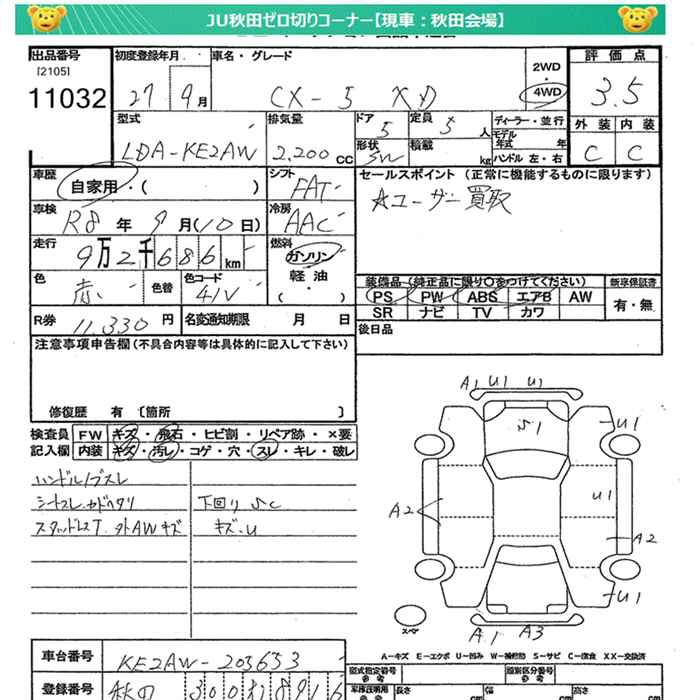 JU秋田ゼロ切りコーナー【現車：秋田会場】
出品番号
[2105]
11032
初度登録年月
27 9月
車名・グレード
CX-5 XD
2WD
4WD
評価点
3.5
型式
LDA-KE2AW
排気量
2.200 CC
ドア
5
定員
5人
形状
SW
積載
kg
ディーラー・並行
モデル年式 年
ハンドル 左・右
外装 内装
C C
車歴
自家用・( )
シフト
FAT
セールスポイント（正常に機能するものに限ります）
☆ユーザー買取
車検
R8年9月(10日)
冷房
AAC
走行
9万2千686km
燃料
ガソリン
軽・油
( )
色
赤
色替
色コード
41V
装備品（純正品に限り○をつけてください）
PS PW ABS エアB AW
SR ナビ TV カワ
新車保証書
有・無
R券
11.330円
名変通知期限 月 日
後日品
注意事項申告欄(不具合内容等は具体的に記入して下さい)
修復歴 有 〔箇所 〕
検査員記入欄
FW キズ・飛石・ヒビ割・リペア跡・×要
内装 キズ・汚レ・コゲ・穴・スレ・キレ・破レ
ハンドル/ブスレ
シートスレ.カドヘタリ
スタッドレスT.外AWキズ
下回り SC
キズ・U
A1 U1 U1
S1
U1
U1
A2
A2
U1
A1 A3
スペア
A-キズ E-エクボ U-凹み W-補修跡 S-サビ C-腐食 XX-交換済
車台番号
KE2AW-203653
登録番号
秋田 300
型式指定番号
類別区分番号
長さ cm
幅 cm
高さ cm